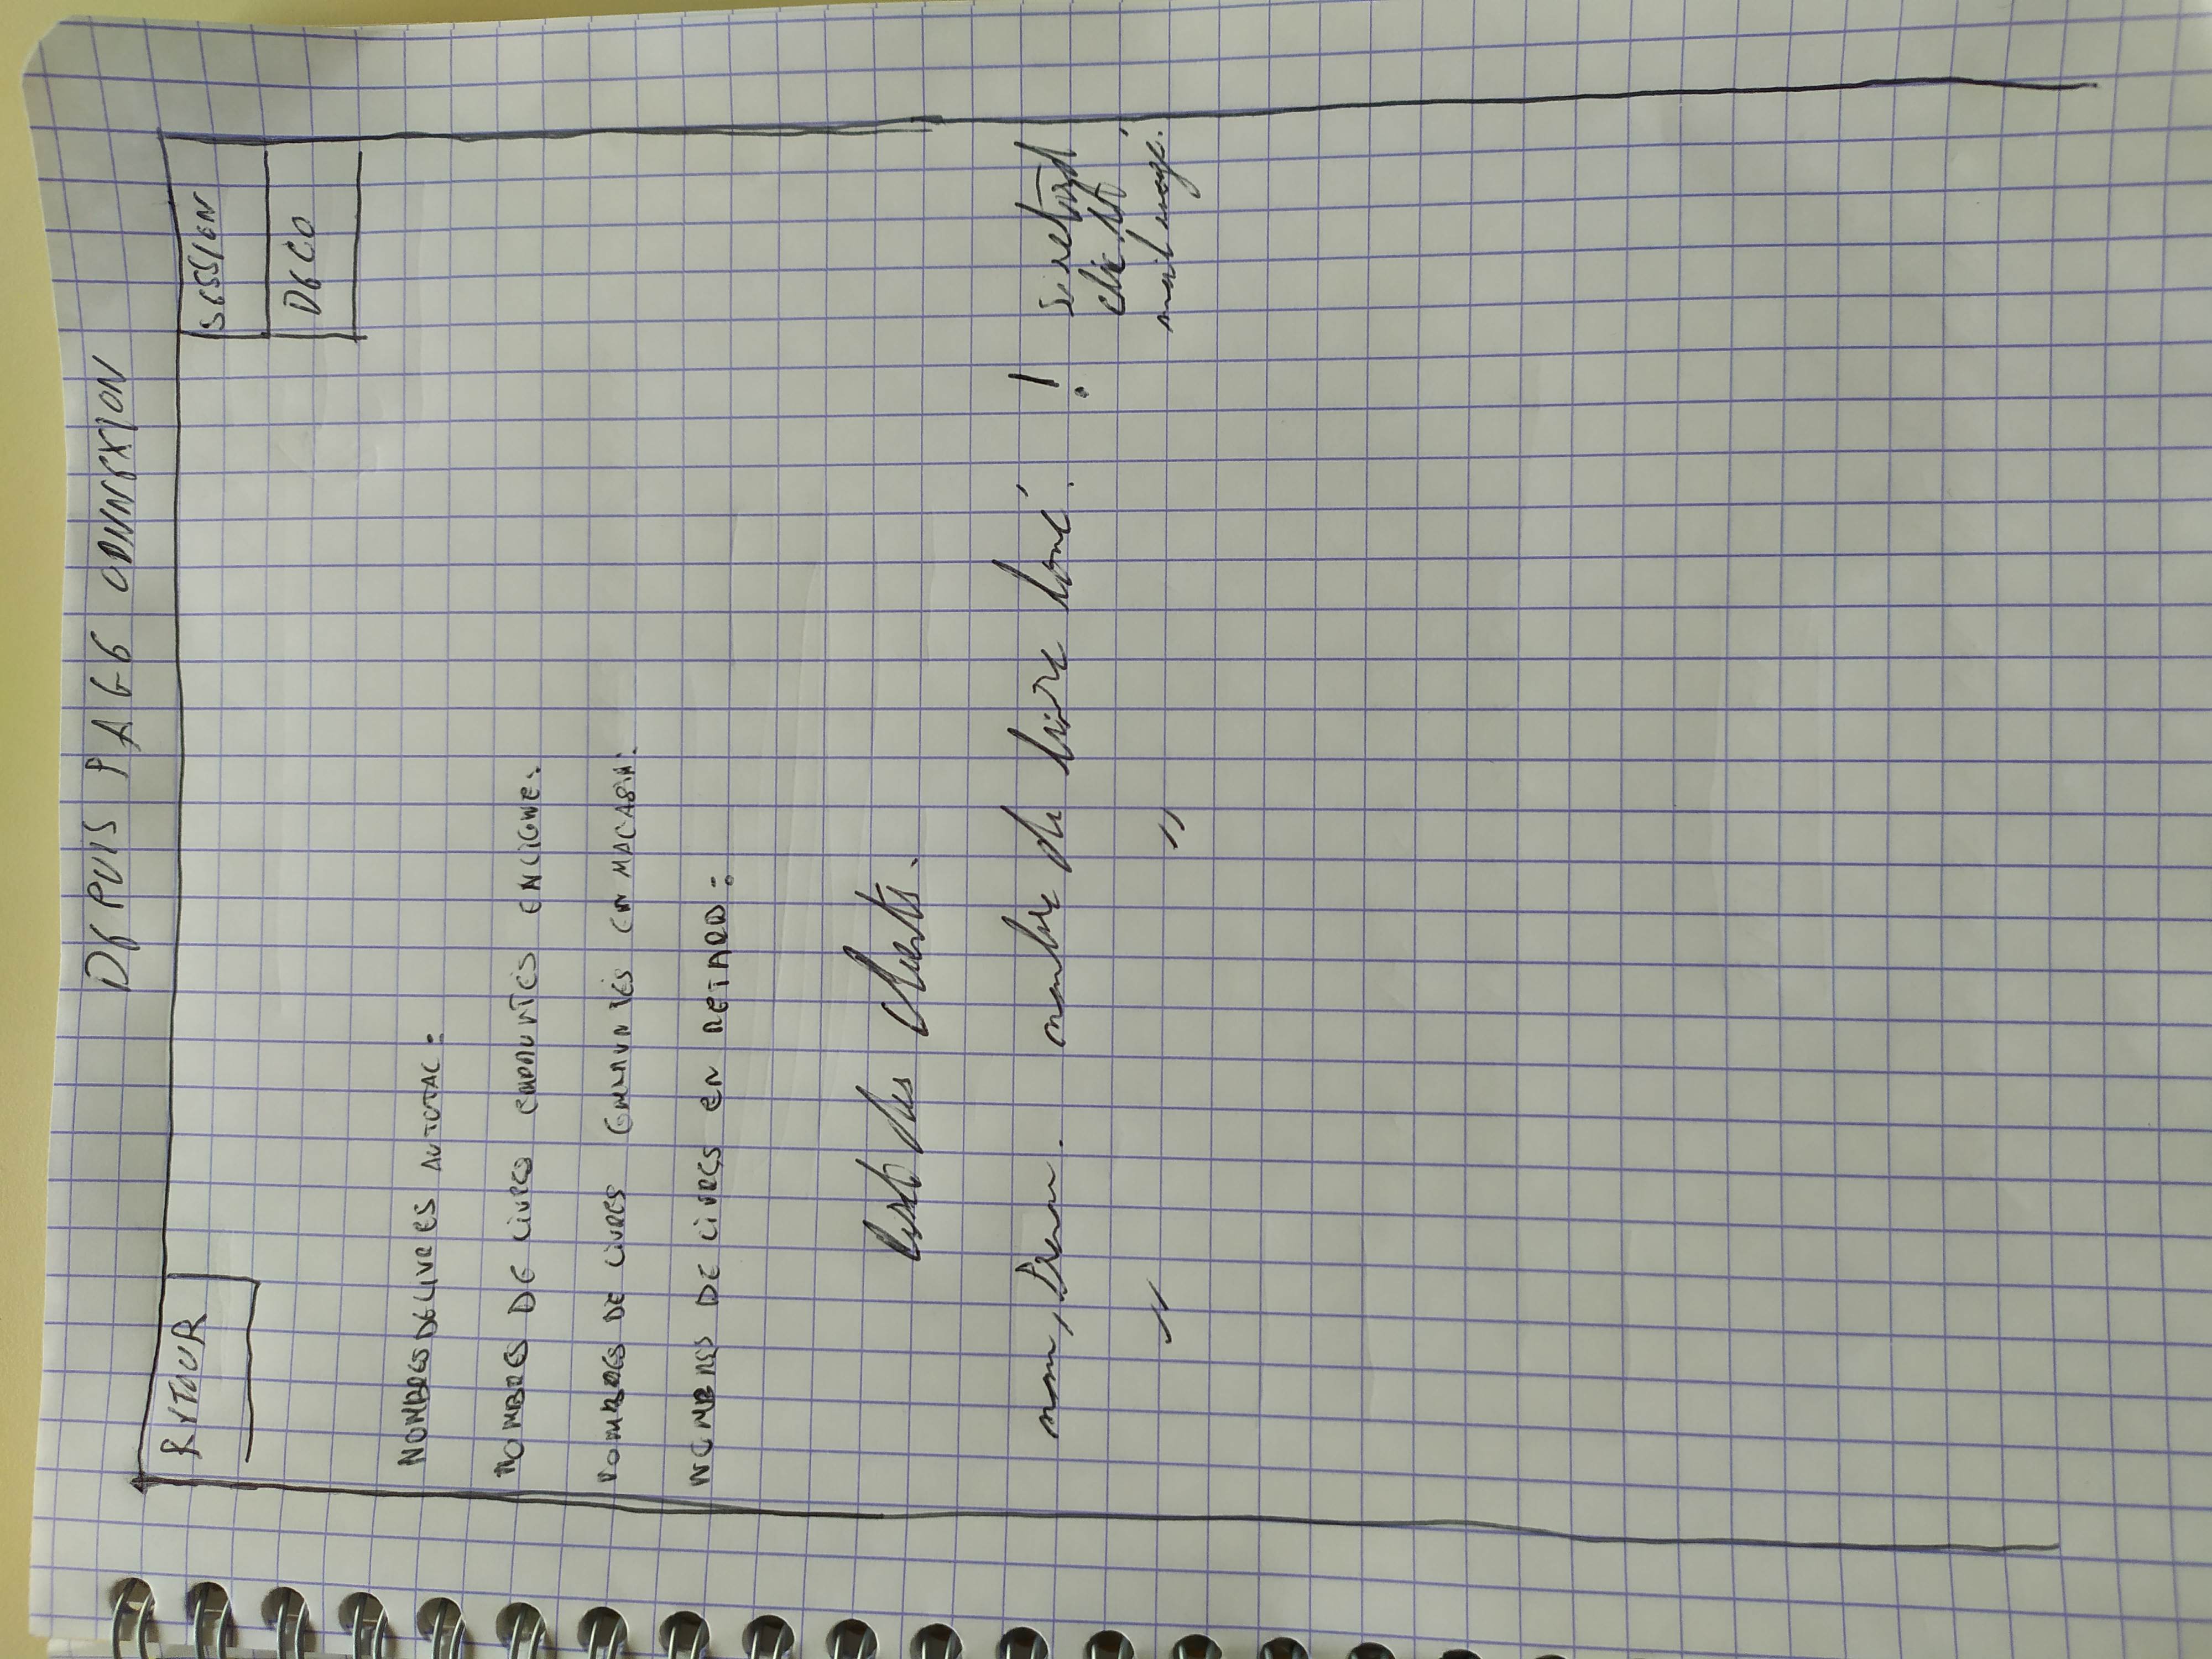 DEPUIS PAGE CONNEXION
RETOUR
SESSION
DECO
NOMBRES DE LIVRES AU TOTAL :
NOMBRES DE LIVRES EMPRUNTÉS EN LIGNE :
NOMBRES DE LIVRES EMPRUNTÉS EN MAGASIN :
NOMBRES DE LIVRES EN RETARD :
Liste des clients.
nom, Prenom. nombre de livre loué. ! Si retard
clic, et
mail
" "